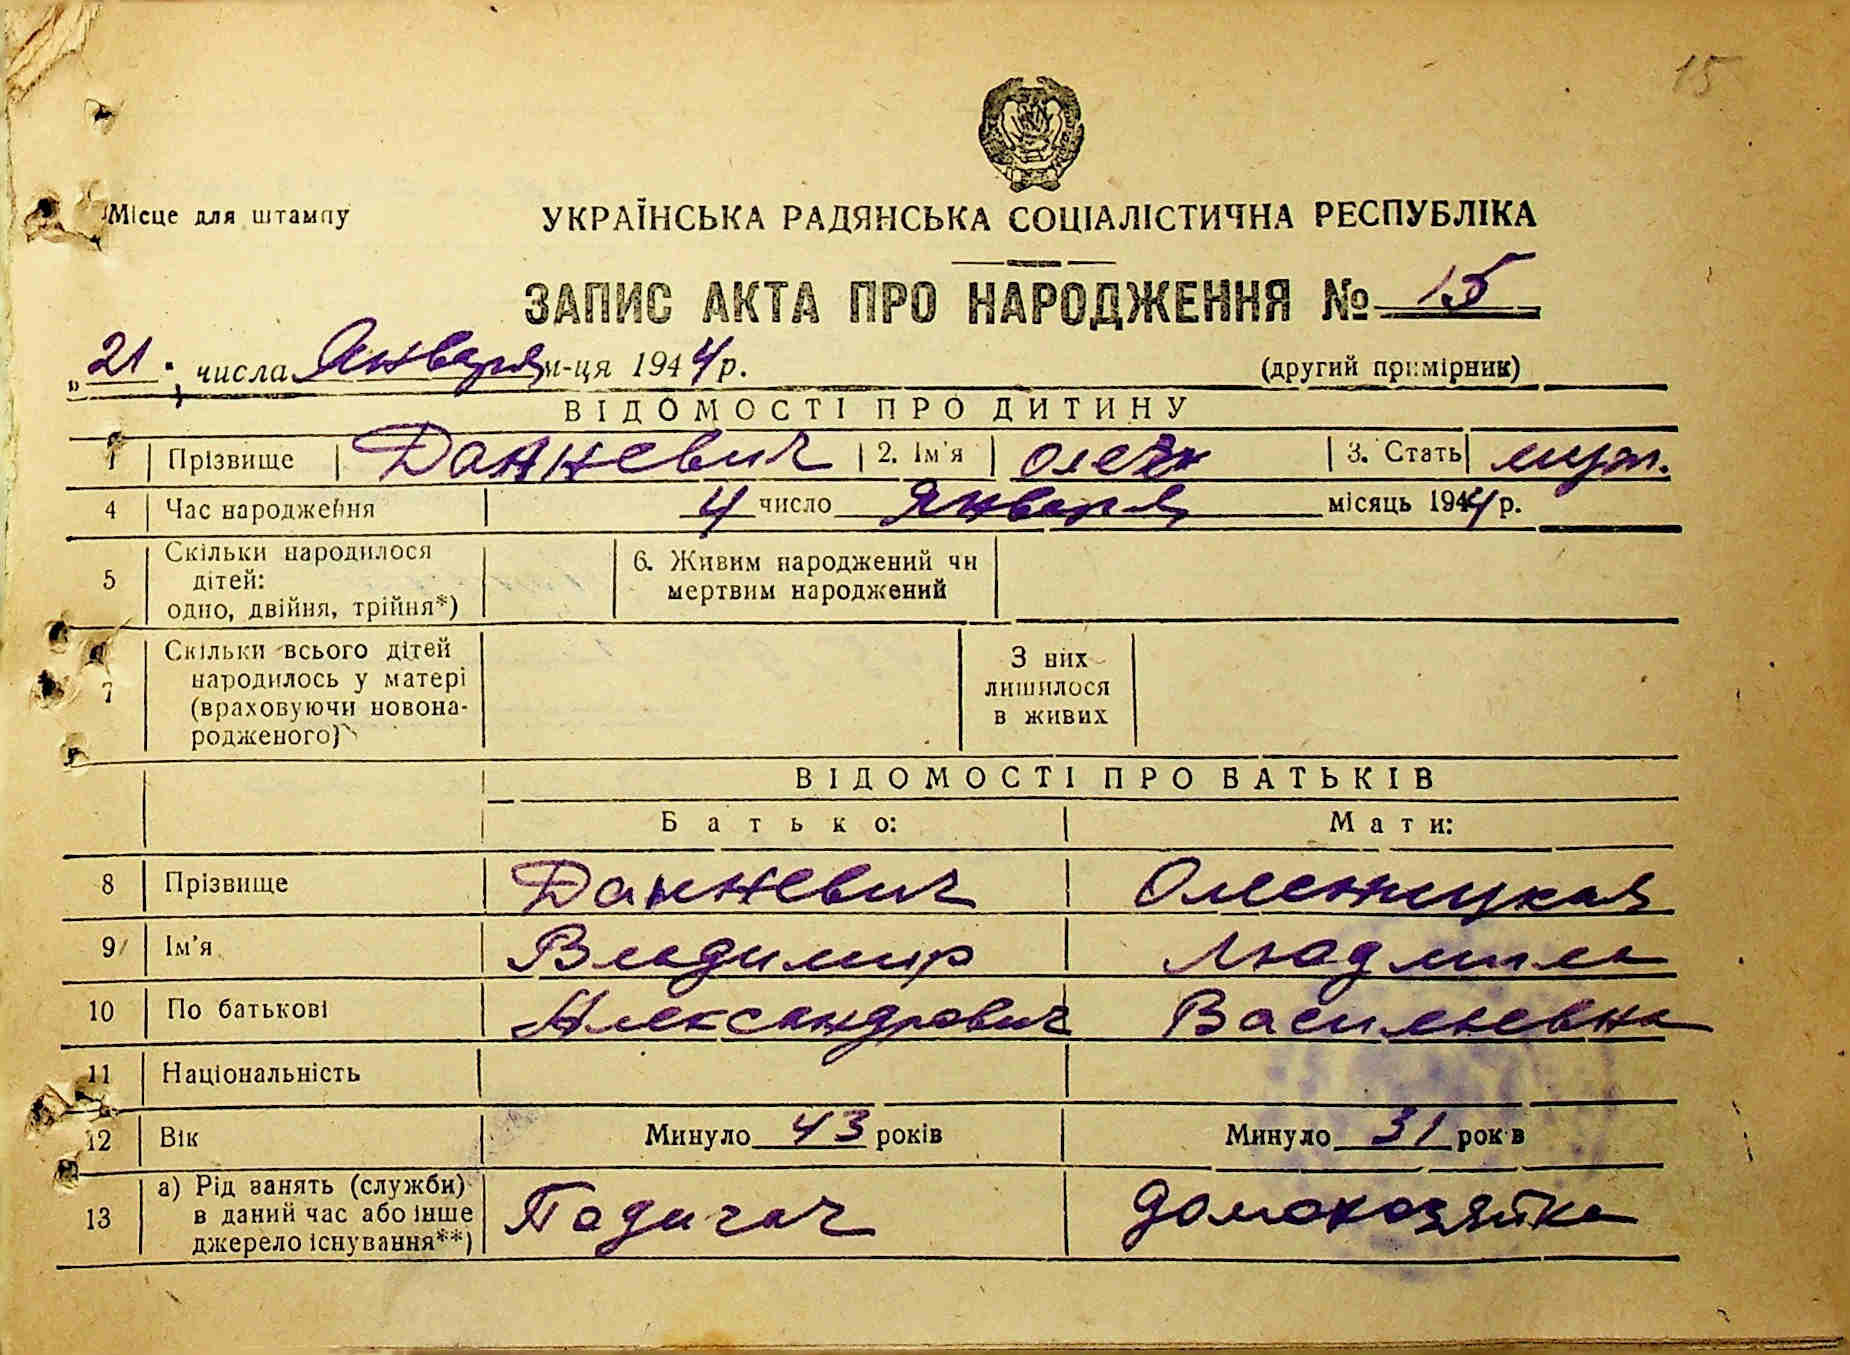 15
Місце для штампу
УКРАЇНСЬКА РАДЯНСЬКА СОЦІАЛІСТИЧНА РЕСПУБЛІКА
ЗАПИС АКТА ПРО НАРОДЖЕННЯ № 15
„21" числа Января м-ця 1944 р. (другий примірник)
ВІДОМОСТІ ПРО ДИТИНУ
1 Прізвище Данкевич 2. Ім'я 3. Стать муж.
4 Час народження 4 число Января місяць 1944 р.
5 Скільки народилося дітей: одно, двійня, трійня*) 6. Живим народжений чи мертвим народжений
7 Скільки всього дітей народилось у матері (враховуючи новонародженого) З них лишилося в живих
ВІДОМОСТІ ПРО БАТЬКІВ
Батько: Мати:
8 Прізвище Данкевич
9 Ім'я Владимир Людмила
10 По батькові Александрович Васильевна
11 Національність
12 Вік Минуло 43 років Минуло 31 років
13 а) Рід занять (служби) в даний час або інше джерело існування**) домохозяйка